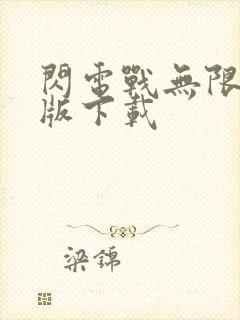 閃電戰無限
版下載
梁錦